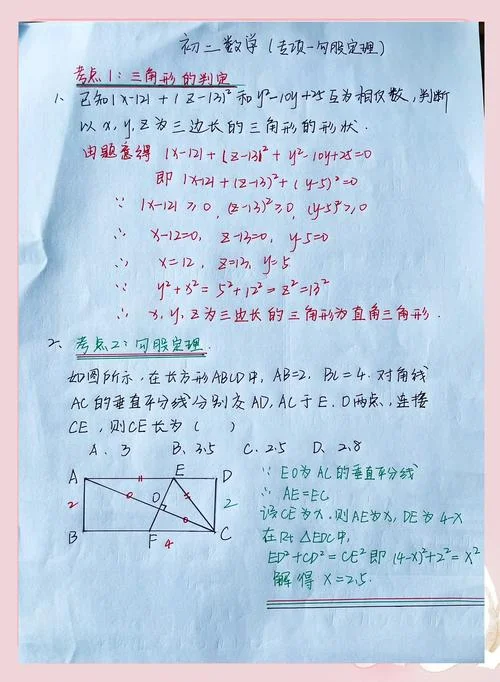 初二数学(专项-勾股定理)
考点1:三角形的判定
1、已知|x-12|+(z-13)²和y²-10y+25互为相反数,判断
以x,y,z为三边长的三角形的形状.
由题意得 |x-12|+(z-13)²+y²-10y+25=0
即 |x-12|+(z-13)²+(y-5)²=0
∵ |x-12|≥0,(z-13)²≥0,(y-5)²≥0
∴ x-12=0, z-13=0, y-5=0
∴ x=12, z=13, y=5
∵ y²+x²=5²+12²=z²=13²
∴ x,y,z为三边长的三角形为直角三角形.
2、考点2:勾股定理.
如图所示,在长方形ABCD中,AB=2,BC=4.对角线
AC的垂直平分线分别交AD,AC于E、O两点,连接
CE,则CE长为( )
A. 3 B. 3.5 C. 2.5 D. 2.8
A E D
2 O 2
B F 4 C
∵ EO为AC的垂直平分线
∴ AE=EC
设CE为x.则AE为x,DE为4-x
在Rt△EDC中,
ED²+CD²=CE²即(4-x)²+2²=x²
解得x=2.5.